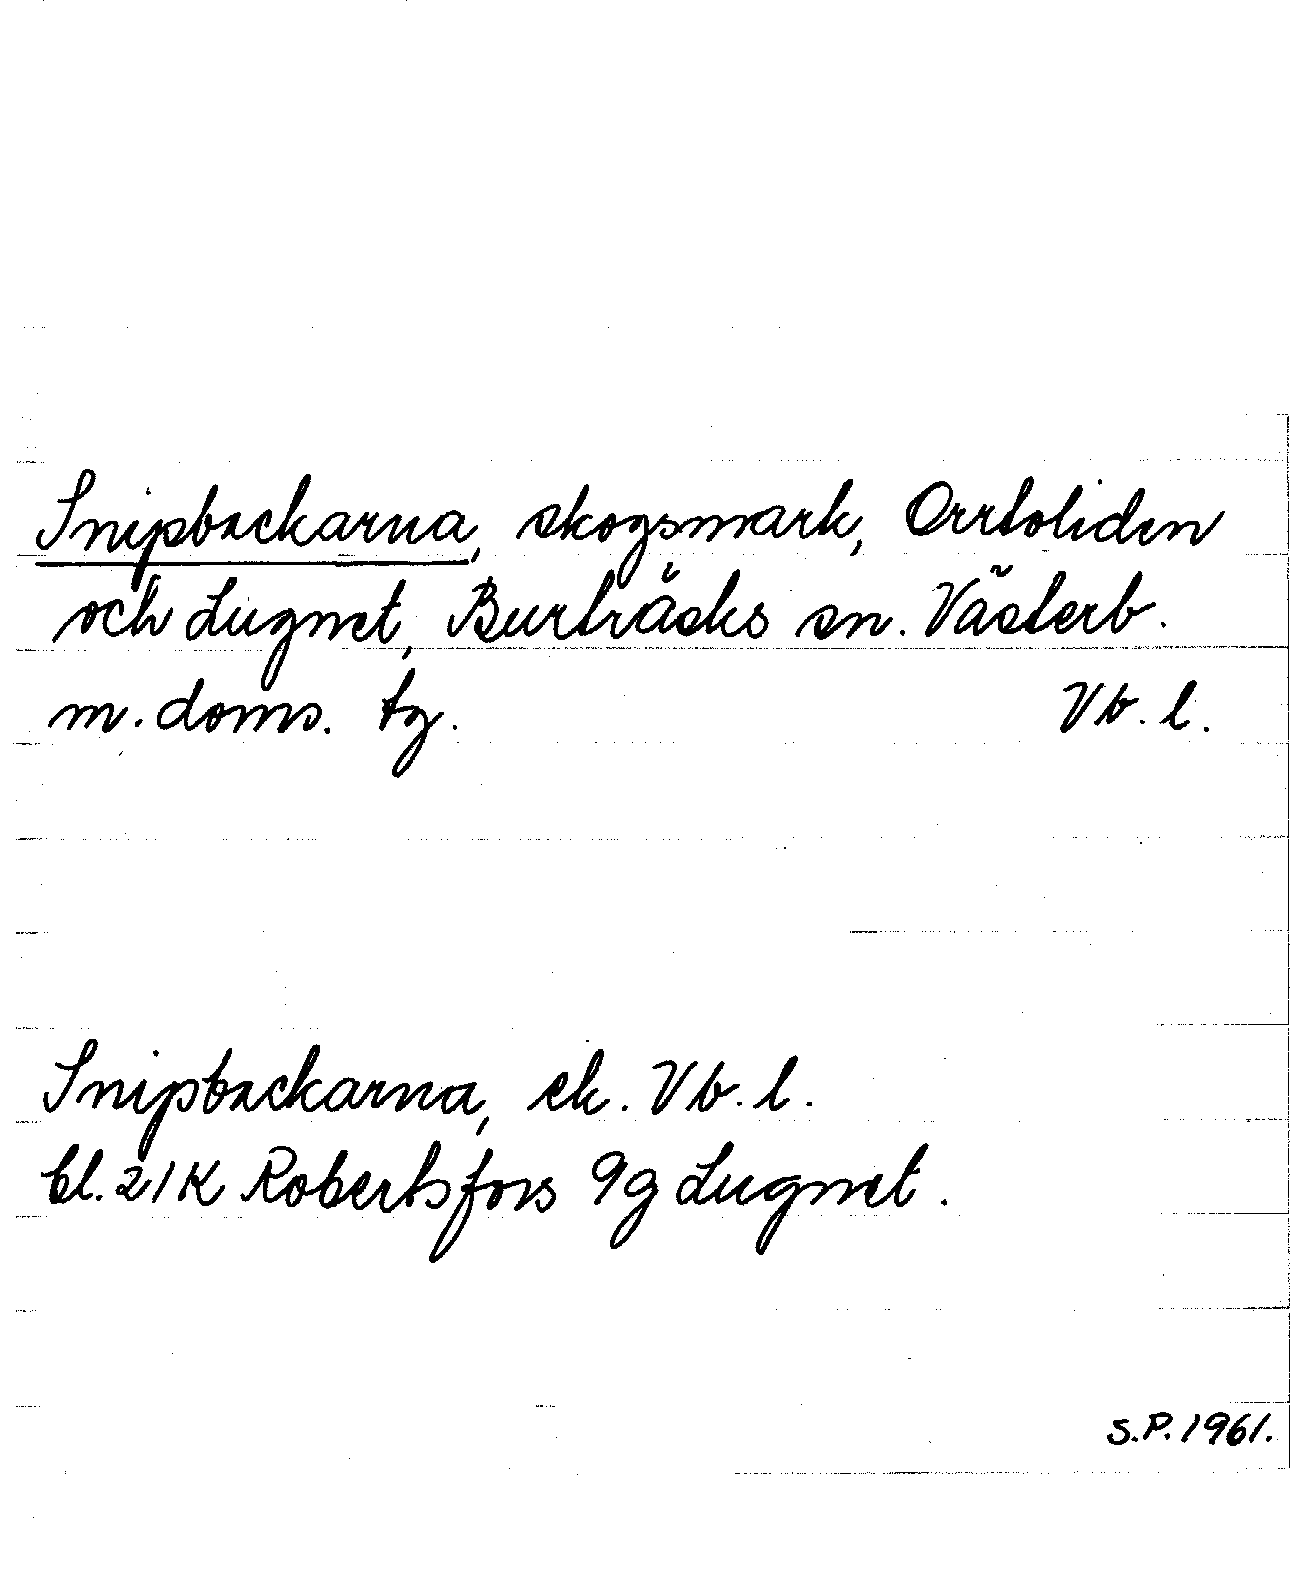 Snipbackarna, skogsmark, Orrtoliden
och Lugnet, Burträsks sn. Västerb.
m. doms. tg. Vb. l.
Snipbackarna, ek. Vb. l.
bl. 21K Robertsfors 9g Lugnet.
S.P. 1961.